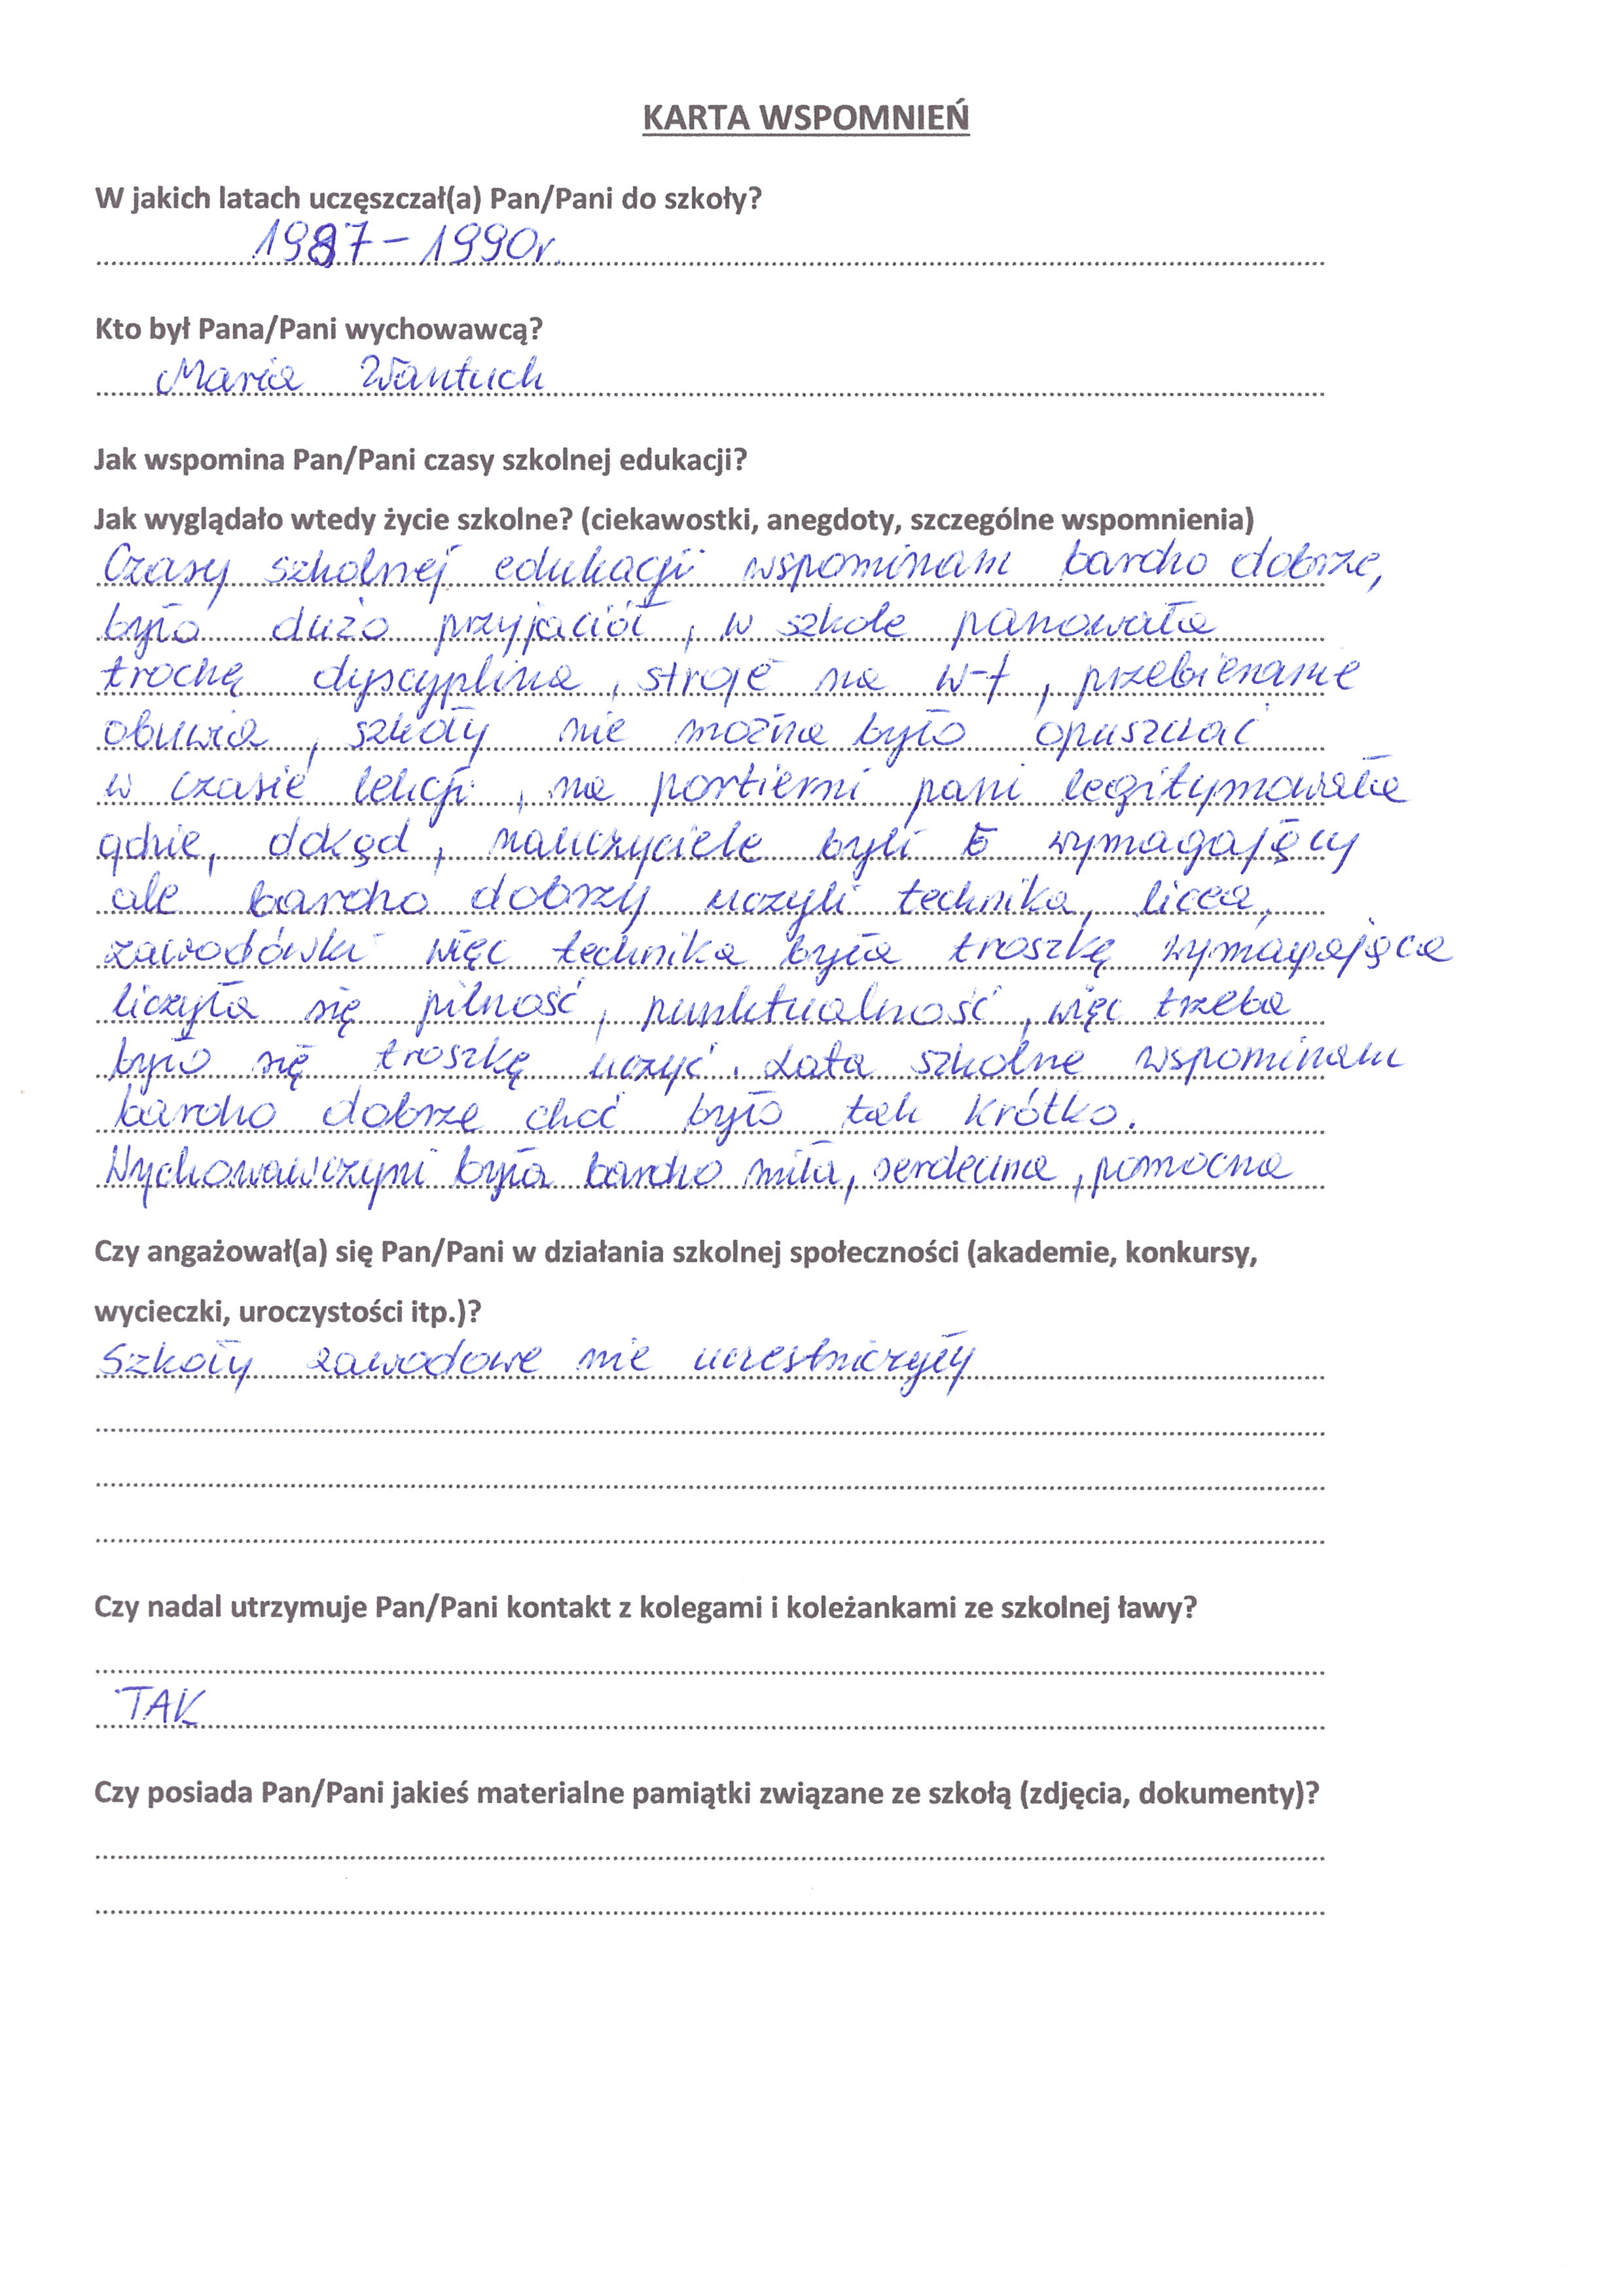 KARTA WSPOMNIEŃ
W jakich latach uczęszczał(a) Pan/Pani do szkoły?
1987 - 1990r.
Kto był Pana/Pani wychowawcą?
Maria Wantuch
Jak wspomina Pan/Pani czasy szkolnej edukacji?
Jak wyglądało wtedy życie szkolne? (ciekawostki, anegdoty, szczególne wspomnienia)
Czasy szkolnej edukacji wspominam bardzo dobrze,
było dużo przyjaciół, w szkole panowała
trochę dyscyplina, stroje na w-f, przebieranie
obuwia, szkoły nie można było opuszczać
w czasie lekcji, na portierni pani legitymowała
gdzie, dokąd, nauczyciele byli wymagający
ale bardzo dobrzy uczyli technika, licea,
zawodówki więc technika była troszkę wymagająca
liczyła się pilność, punktualność, więc trzeba
było się troszkę uczyć. Lata szkolne wspominam
bardzo dobrze choć było tak krótko.
Wychowawczyni była bardzo miła, serdeczna, pomocna
Czy angażował(a) się Pan/Pani w działania szkolnej społeczności (akademie, konkursy,
wycieczki, uroczystości itp.)?
Szkoły zawodowe nie uczestniczyły
Czy nadal utrzymuje Pan/Pani kontakt z kolegami i koleżankami ze szkolnej ławy?
TAK
Czy posiada Pan/Pani jakieś materialne pamiątki związane ze szkołą (zdjęcia, dokumenty)?